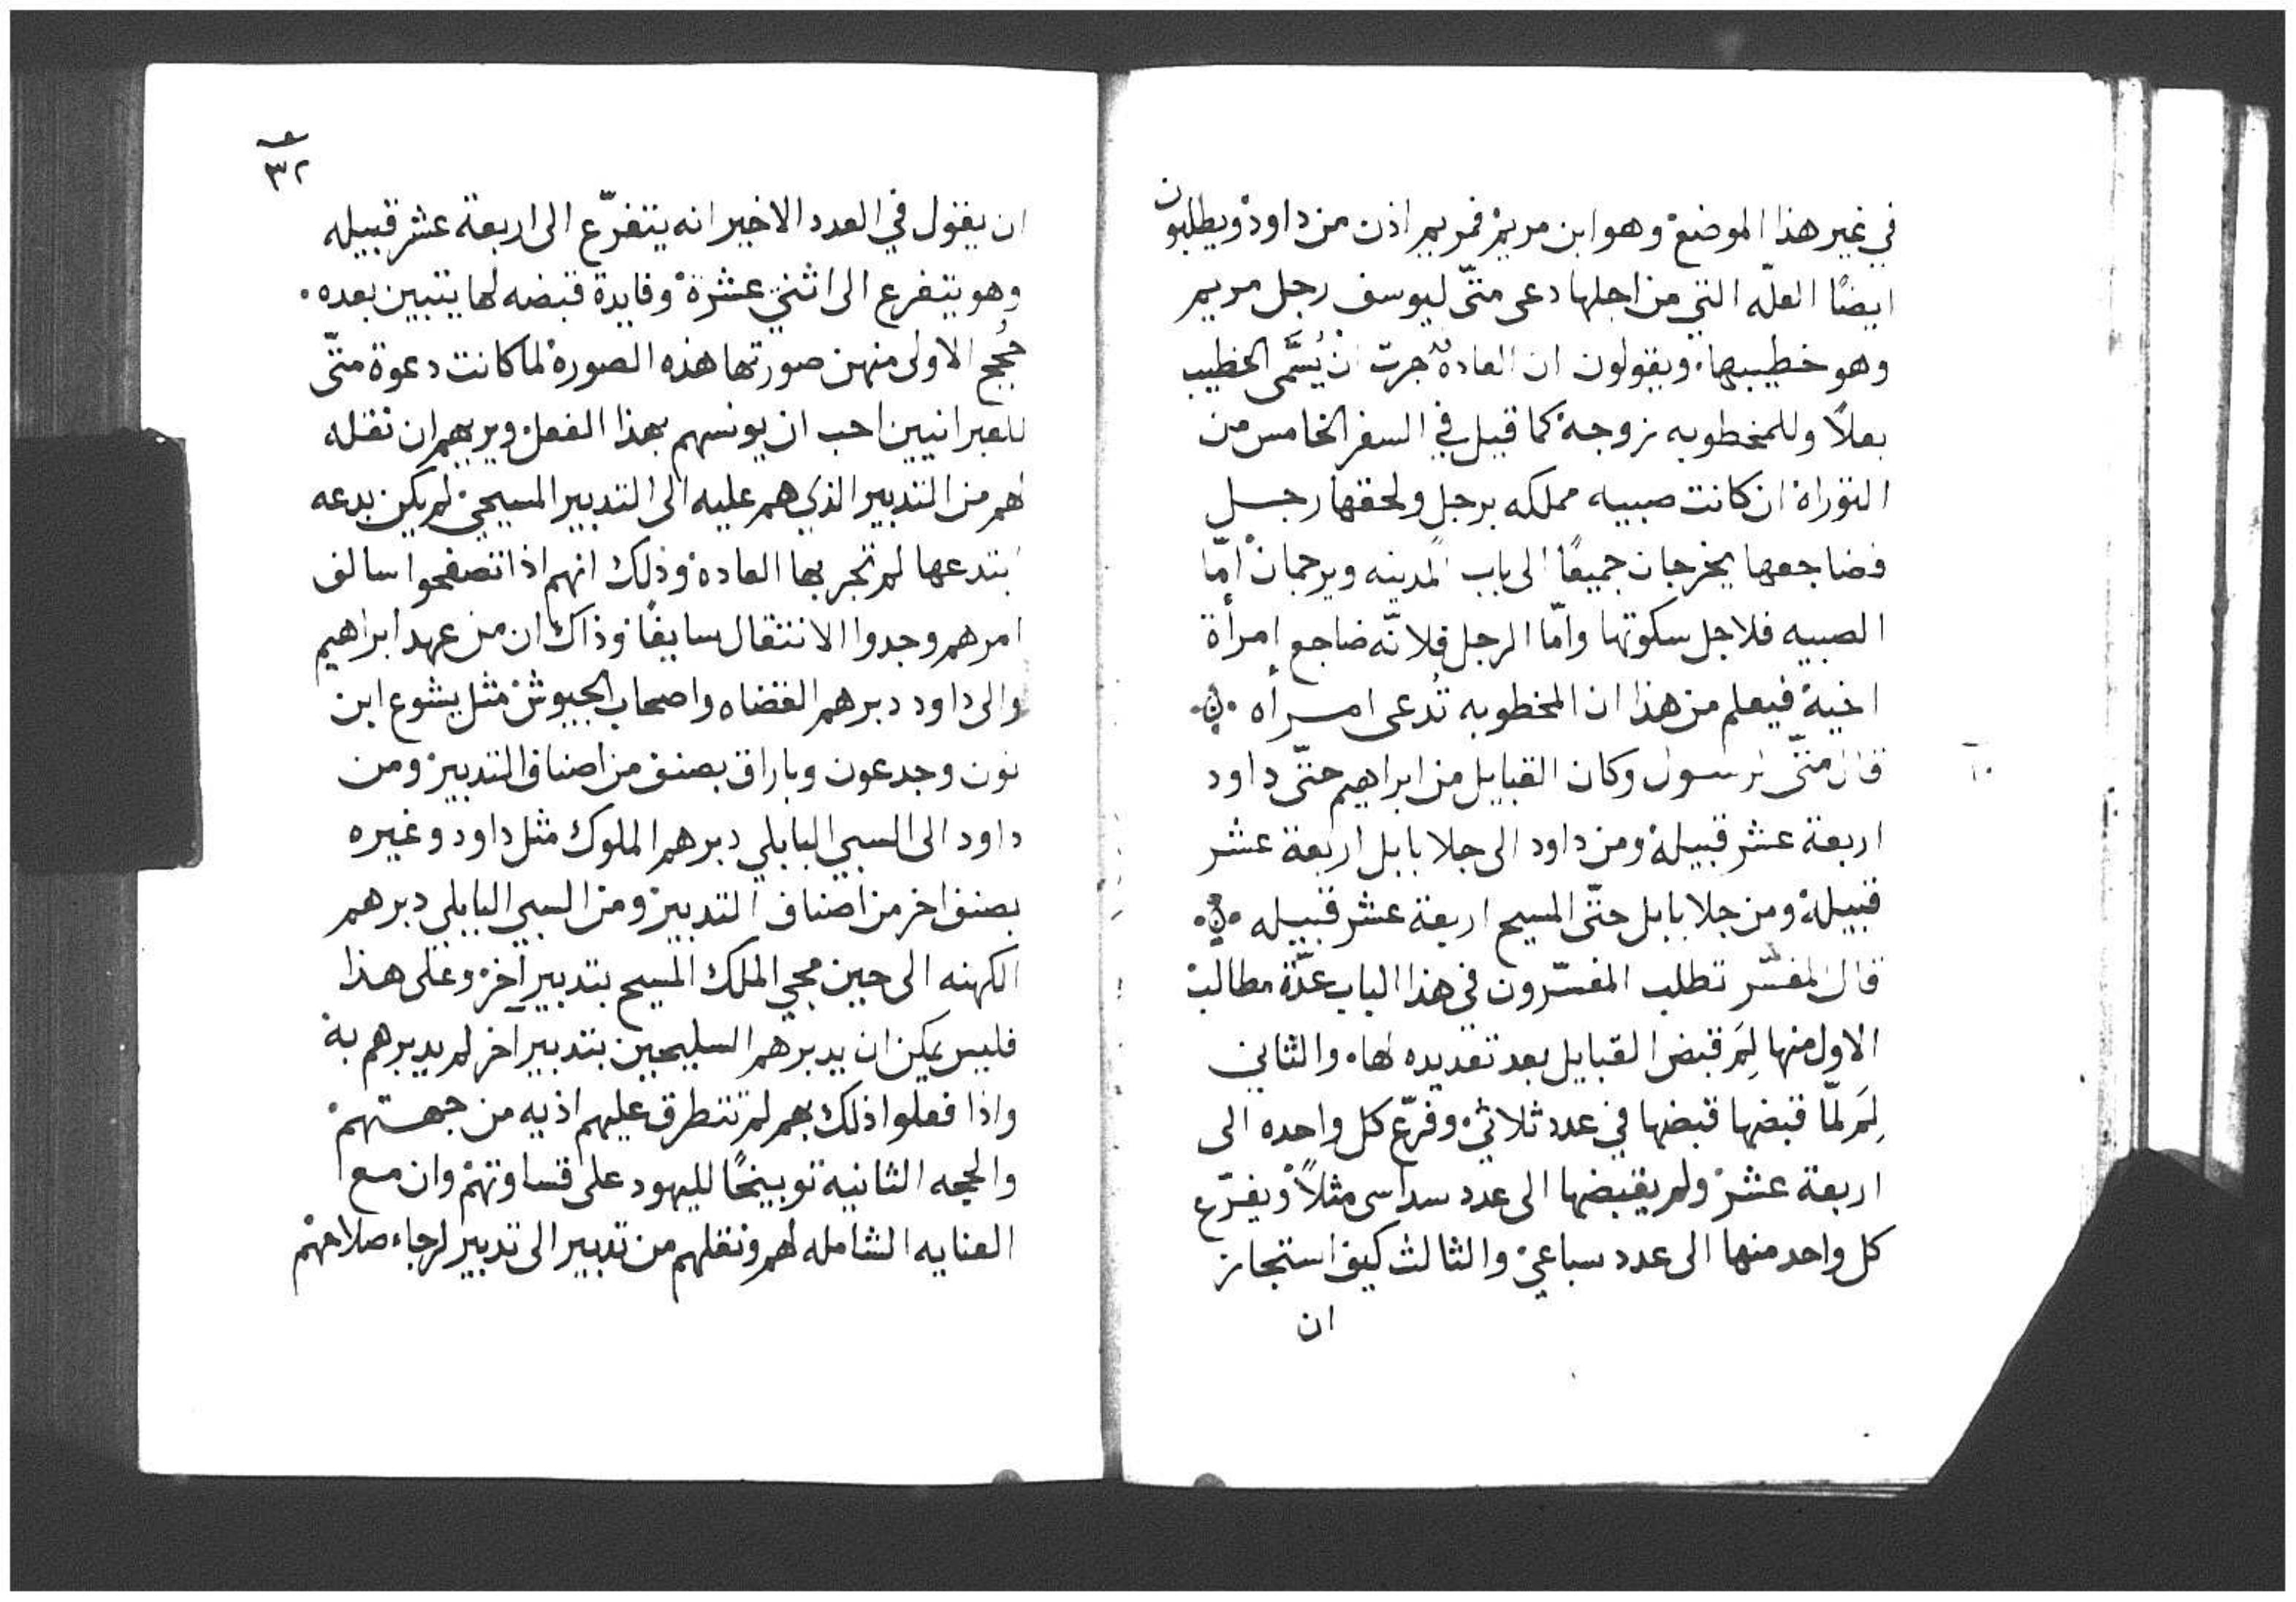 في غير هذا الموضع وهو ابن مريم فمريم اذن من داود ويطلبون
ايضًا العلّه التي من اجلها دعى متّى ليوسف رجل مريم
وهو خطيبها. ويقولون ان العادة جرت انْ يُسَمَّى الخطيب
بعلاً وللمخطوبه زوجة كما قيل في السفر الخامس من
التوراة ان كانت صبيه مملكه برجل ولحقها رجل
فضاجعها يخرجان جميعًا الى باب المدينه ويرجمان امّا
الصبيه فلاجل سكوتها وامّا الرجل فلانّه ضاجع امرأة
اخيه فيعلم من هذا ان المخطوبه تُدعى امرأه
قال متّى الرسول وكان القبايل من ابراهيم حتّى داود
اربعة عشر قبيلة ومن داود الى جلا بابل اربعة عشر
قبيلة ومن جلا بابل حتّى المسيح اربعة عشر قبيله
قال المفسّر تطلب المفسّرون في هذا الباب عدّة مطالب
الاول منها لِمَ قبض القبايل بعد تعديده لها. والثاني
لِمَ لمّا قبضها قبضها في عدد ثلاثي وفرّع كل واحده الى
اربعة عشر ولم يقبضها الى عدد سداسى مثلاً ويفرّع
كل واحد منها الى عدد سباعي والثالث كيف استجاز
ان
٣٢
ان يقول في العدد الاخير انه يتفرّع الى اربعة عشر قبيله
وهو يتفرع الى اثني عشرة وفايدة قبضه لها يتبين بعده.
حُجج الاولى منهن صورتها هذه الصورة لما كانت دعوة متّى
للعبرانيين احب ان يونسهم بهذا الفعل ويريهم ان نقله
لهم من التدبير الذي هم عليه الى التدبير المسيحي لم يكن بدعه
ابتدعها لم تجر بها العادة وذلك انهم اذا تصفحوا سالف
امرهم وجدوا الانتقال سايغًا وذاك ان من عهد ابراهيم
والى داود دبرهم القضاه واصحاب الجيوش مثل يشوع ابن
نون وجدعون وباراق بصنف من اصناف التدبير ومن
داود الى السبي البابلي دبرهم الملوك مثل داود وغيره
بصنف اخر من اصناف التدبير ومن السبي البابلي دبرهم
الكهنه الى حين مجي الملك المسيح بتدبير آخر وعلى هذا
فليس يمكن ان يدبرهم السليحيين بتدبير آخر لم يدبرهم به
واذا فعلوا ذلك بهم لم تتطرق عليهم اذيه من جهتهم
والحجه الثانيه توبيخًا لليهود على قساوتهم وان مع
العنايه الشامله لهم ونقلهم من تدبير الى تدبير لرجاء صلاحهم